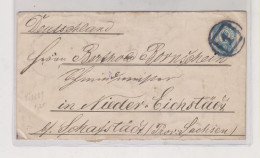 Deutschland
Herrn Berthold Bornschein
Schmiedemeister
in Nieder-Eichstädt
b/ Schafstädt (Prov Sachsen)